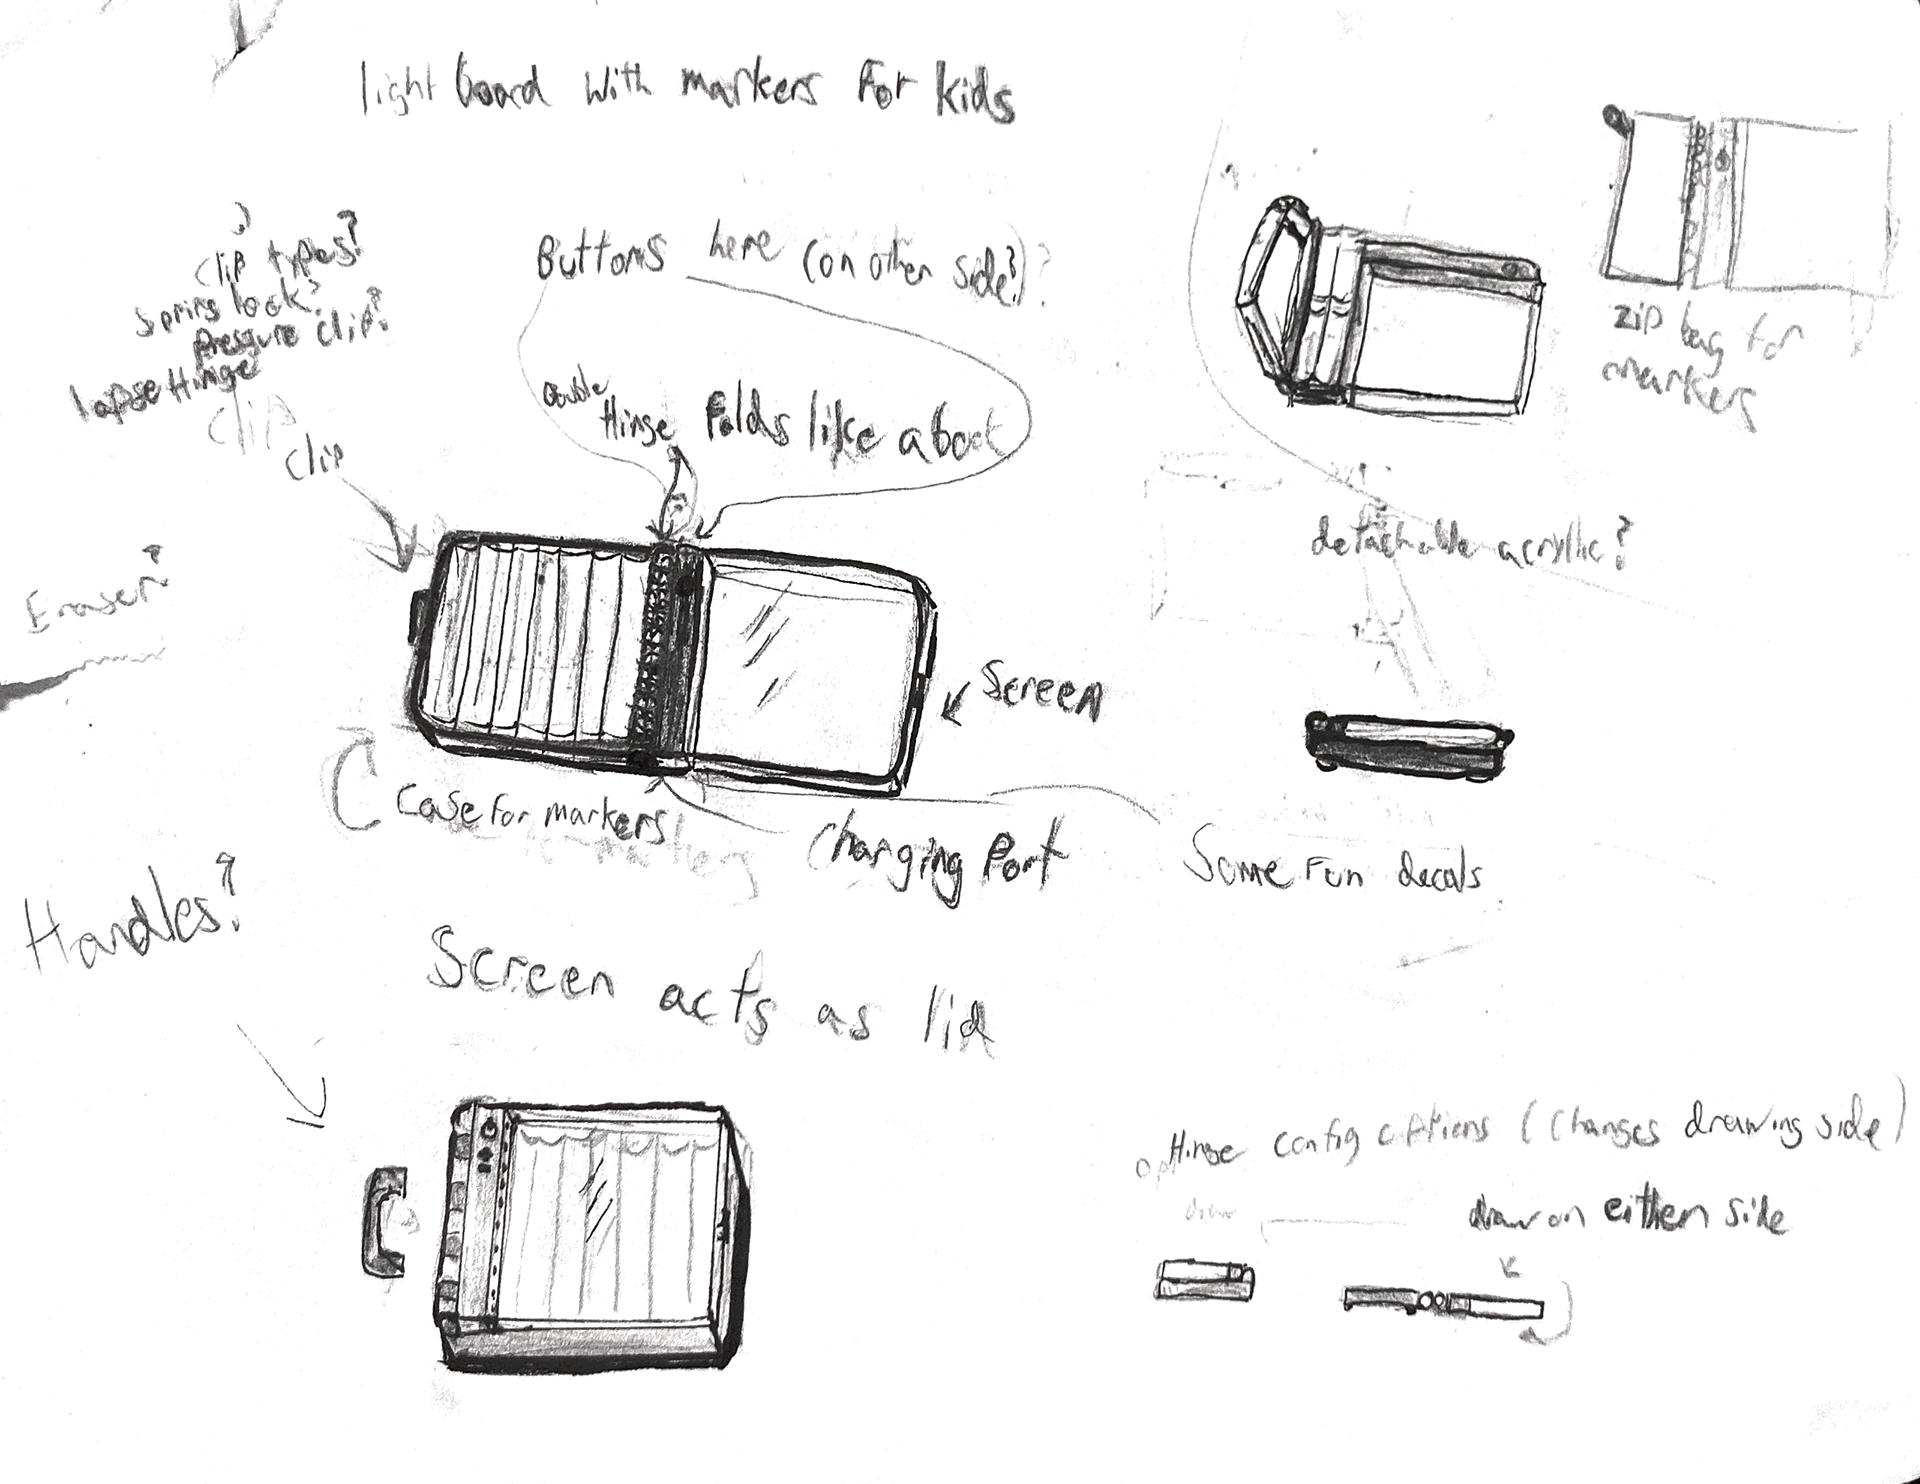 light board with markers For kids
?
clip types?
Spring lock?
Pressure clip?
lapse Hinge
Clip
Clip
Buttons here (on other side?)?
double
Hinge Folds like a book
zip bag for
markers
Eraser?
detachable acrylic?
Screen
Case for markers
Charging Port
Some Fun decals
Handles?
Screen acts as lid
Hinge config options (changes drawing side)
draw
draw on either side